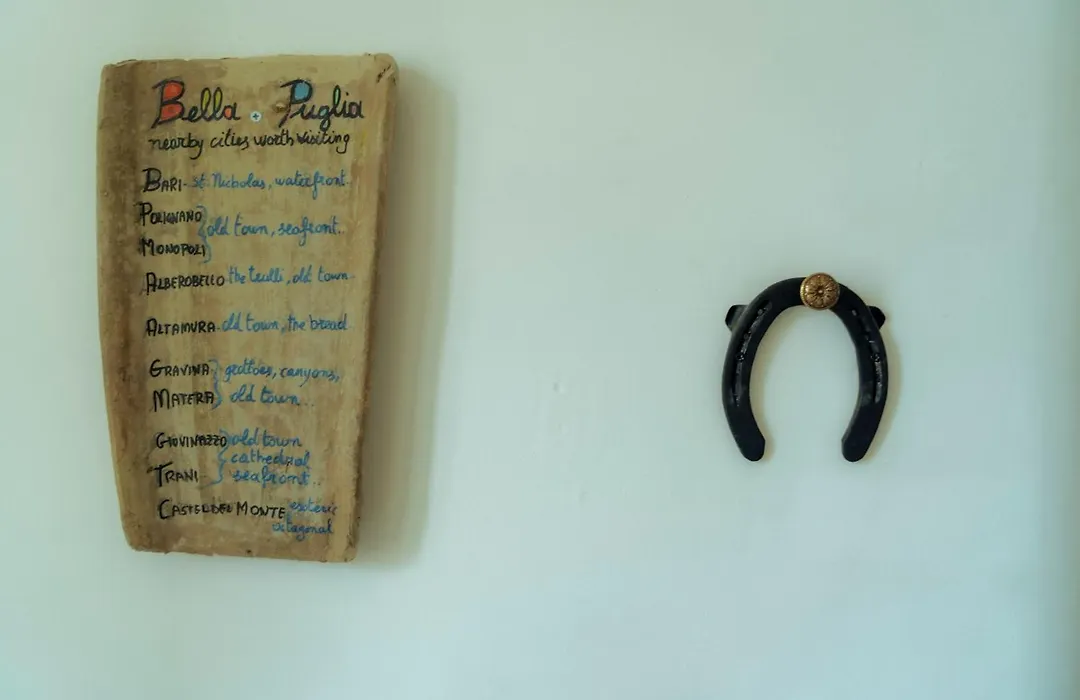 Bella Puglia
nearby cities worth visiting
BARI - st. Nicholas, waterfront.
POLIGNANO
old town, seafront..
MONOPOLI
ALBEROBELLO - the trulli, old town-
ALTAMURA - old town, the bread
GRAVINA grottoes, canyons,
MATERA old town...
GIOVINAZZO old town
cathedral
TRANI seafront..
CASTEL DEL MONTE esoteric
octagonal